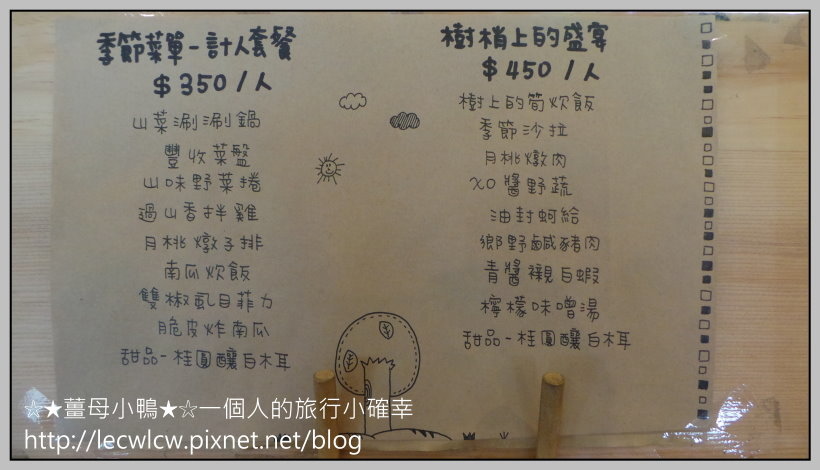 季節菜單-計人套餐
$350/人
山菜涮涮鍋
豐收菜盤
山味野菜捲
過山香拌雞
月桃燉子排
南瓜炊飯
雙椒虱目菲力
脆皮炸南瓜
甜品-桂圓釀白木耳
樹梢上的盛宴
$450/人
樹上的筍炊飯
季節沙拉
月桃燉肉
XO醬野蔬
油封蚵給
鄉野鹹豬肉
青醬襯白蝦
檸檬味噌湯
甜品-桂圓釀白木耳
☆★薑母小鴨★☆一個人的旅行小確幸
http://lecwlcw.pixnet.net/blog